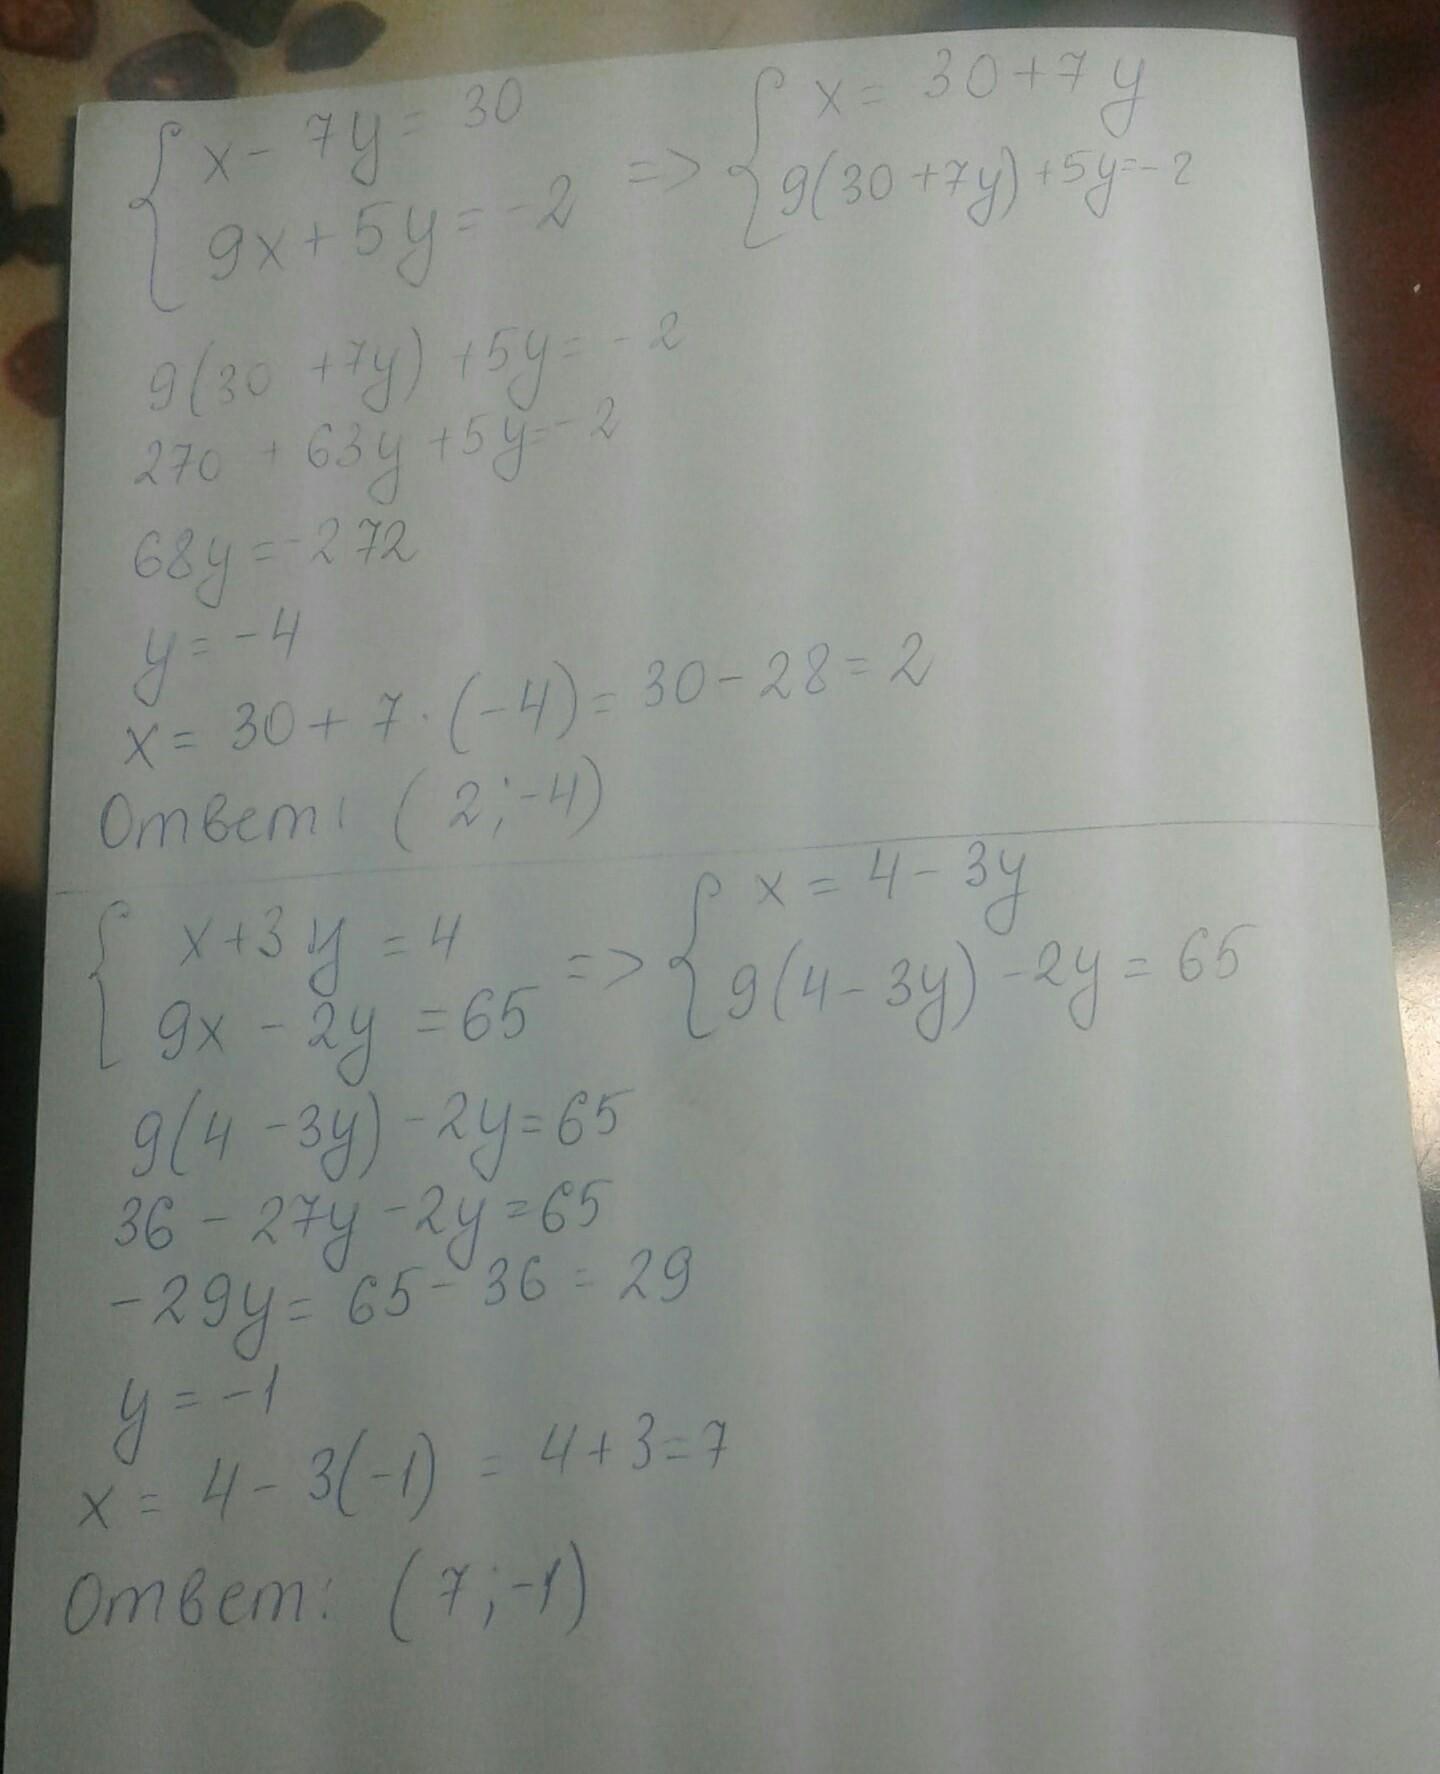 { x - 7y = 30 => { x = 30 + 7y
9x + 5y = -2 9(30 + 7y) + 5y = -2
9(30 + 7y) + 5y = -2
270 + 63y + 5y = -2
68y = -272
y = -4
x = 30 + 7 · (-4) = 30 - 28 = 2
Ответ: (2; -4)
{ x + 3y = 4 => { x = 4 - 3y
9x - 2y = 65 9(4 - 3y) - 2y = 65
9(4 - 3y) - 2y = 65
36 - 27y - 2y = 65
-29y = 65 - 36 = 29
y = -1
x = 4 - 3(-1) = 4 + 3 = 7
Ответ: (7; -1)